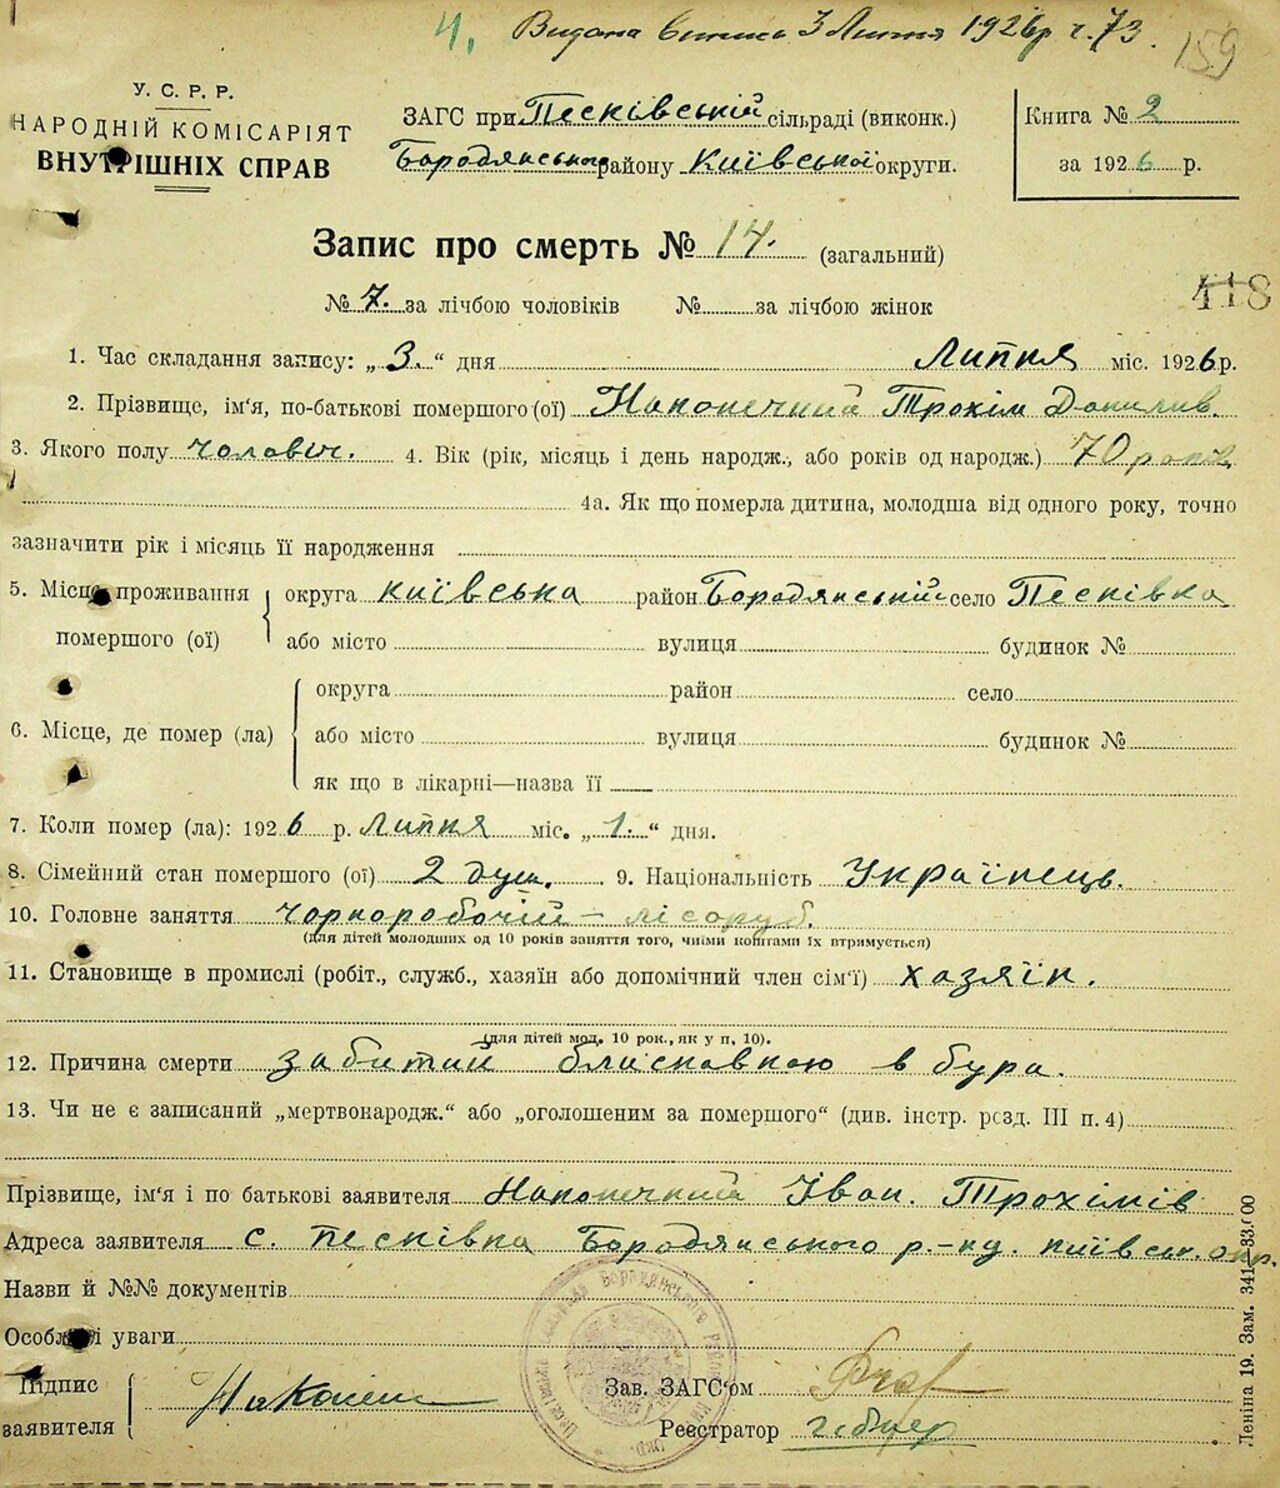 Ч. Видана витись 3 Липня 1926р ч. 73. 159
У. С. Р. Р.
НАРОДНІЙ КОМІСАРІЯТ
ВНУТРІШНІХ СПРАВ
ЗАГС при Песківській сільраді (виконк.)
Бородянського району Київської округи.
Книга № 2
за 1926 р.
Запис про смерть № 14. (загальний)
418
№ 7. за лічбою чоловіків № за лічбою жінок
1. Час складання запису: „3.“ дня Липня міс. 1926 р.
2. Прізвище, ім'я, по-батькові помершого (ої) Наконечний Трохім Данилив.
3. Якого полу чоловіч. 4. Вік (рік, місяць і день народж., або років од народж.) 70 років
4а. Як що померла дитина, молодша від одного року, точно
зазначити рік і місяць її народження
5. Місце проживання помершого (ої) округа Київська район Бородянській село Песківка
або місто вулиця будинок №
6. Місце, де помер (ла) округа район село
або місто вулиця будинок №
як що в лікарні—назва її
7. Коли помер (ла): 1926 р. Липня міс. „1.“ дня.
8. Сімейний стан помершого (ої) 2 душ. 9. Національність Українець.
10. Головне заняття чорноробочій - лісоруб.
(для дітей молодших од 10 років заняття того, чиїми коштами їх втримується)
11. Становище в промислі (робіт., служб., хазяїн або допомічний член сім'ї) хазяїн.
(для дітей мод. 10 рок., як у п. 10).
12. Причина смерти забитий блискавкою в бурю.
13. Чи не є записаний „мертвонародж.“ або „оголошеним за помершого“ (див. інстр. розд. III п. 4)
Прізвище, ім'я і по батькові заявителя Наконечний Іван. Трохимів
Адреса заявителя с. Песківка Бородянського р-ну. київськ. окр.
Назви й №№ документів
Особливі уваги
Підпис заявителя Наконеч
Зав. ЗАГС'ом
Реєстратор
Леніна 19. Зам. 341—33.000